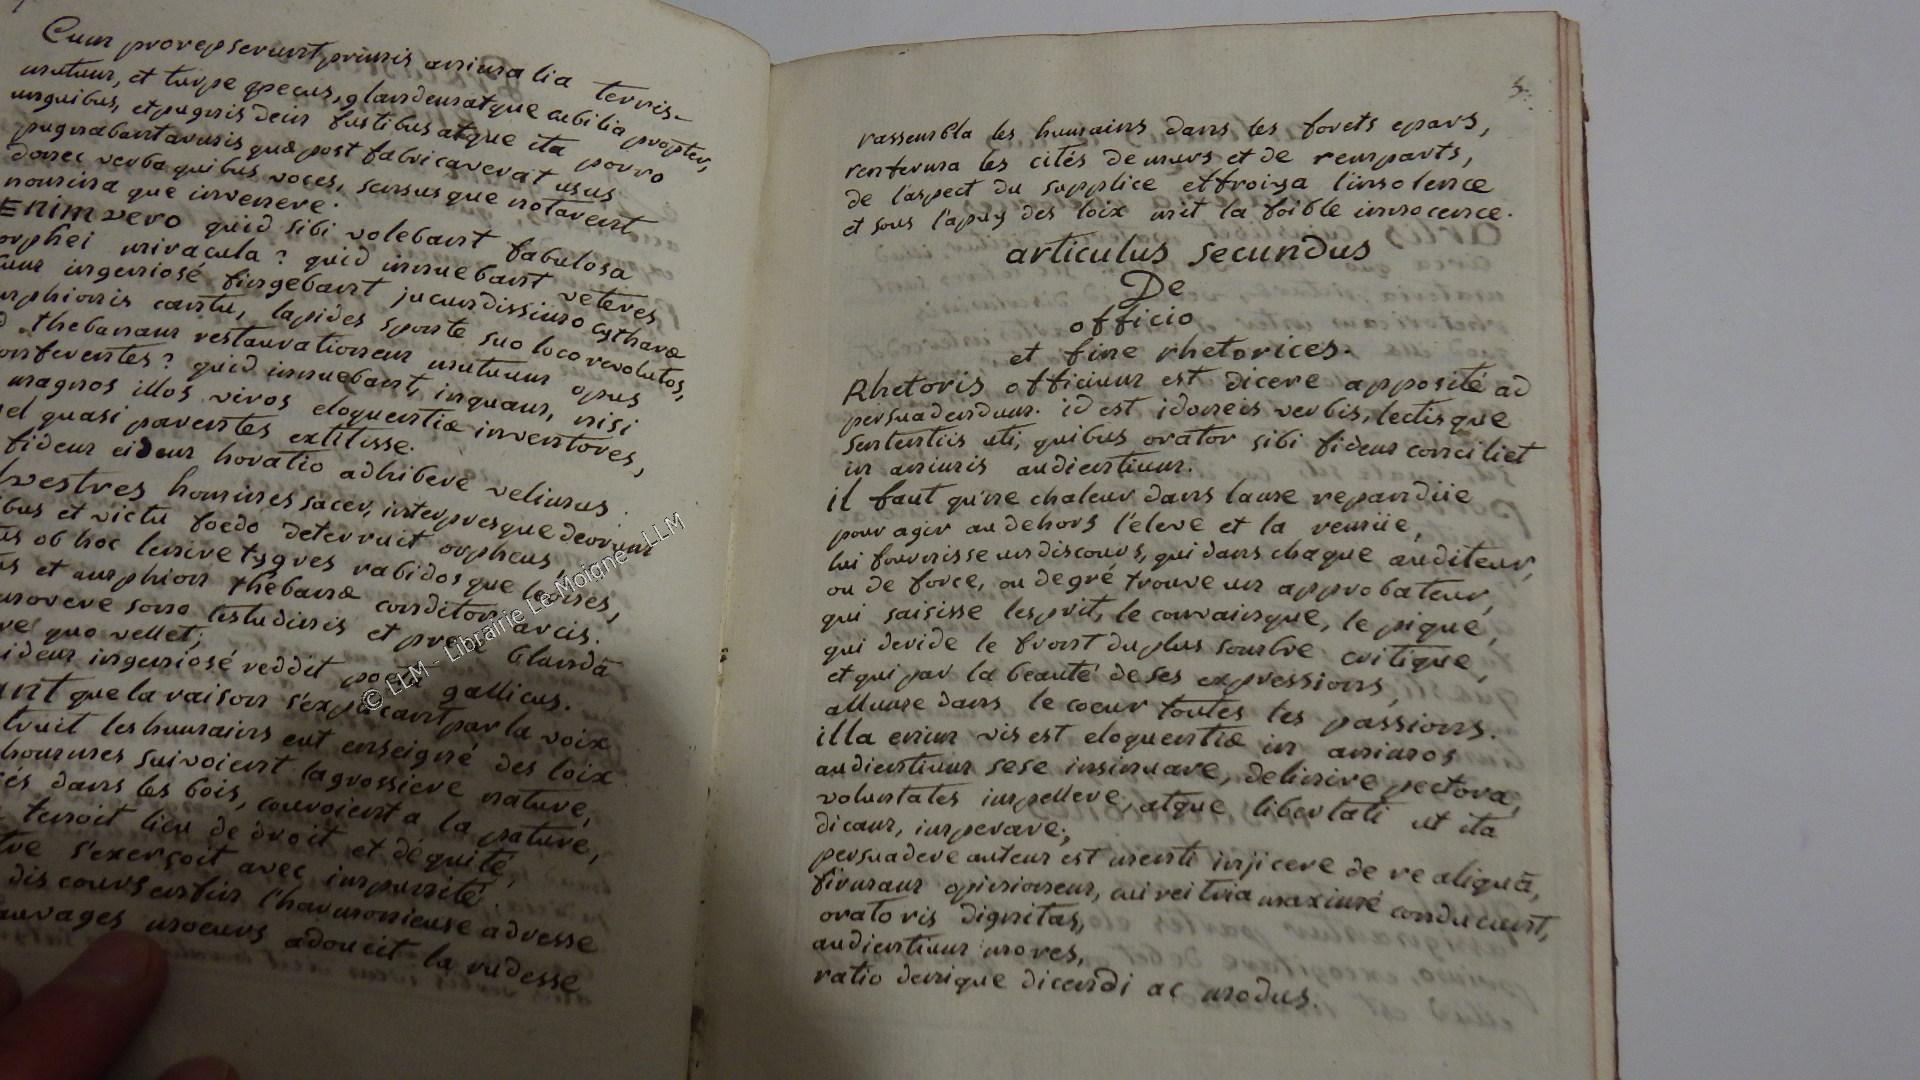 Cum prorepserunt primis animalia terris
mutum, et turpe pecus, glandem atque cubilia propter,
unguibus, et pugnis dein fustibus atque ita porro
pugnabant armis quæ post fabricaverat usus
donec verba quibus voces, sensusque notarent
nomina que invenere.
Enim vero quid sibi volebant fabulosa
orphei miracula? quid innuebant veteres
cum ingeniosé fingebant jucundissimo cytharæ
amphionis cantu, lapides sponte suo loco revolutos,
thebanam restaurationem mutuum opus
conferentes? quid innuebant, inquam, nisi
magnos illos viros eloquentiæ inventores,
vel quasi parentes extitisse.
fidem eidem horatio adhibere velimus.
silvestres homines sacer, interpresque deorum
cædibus et victu foedo deterruit orpheus
dictus ob hoc lenire tygres rabidosque leones,
dictus et amphion thebanæ conditor arcis.
movere sono testudinis et prece blandā
ducere quo vellet;
idem ingeniosé reddit poeta gallicus.
avant que la raison s'expliquant par la voix
instruit les humains eut enseigné des loix
hommes suivoient la grossiere nature,
dispersés dans les bois, couroient a la pature,
tenoit lieu de droit et déquité,
meurtre s'exerçoit avec impunité.
discours enfin l'harmonieuse adresse
sauvages moeurs adoucit la rudesse
5.
rassembla les humains dans les forets epars,
renferma les cités de murs et de remparts,
de l'aspect du supplice effroiya l'insolence
et sous l'apuy des loix mit la foible innocence.
articulus secundus
De
officio
et fine rhetorices.
Rhetoris officium est dicere apposité ad
persuadendum. id est idoneis verbis, lectisque
sententiis uti, quibus orator sibi fidem conciliet
in animis audientium.
il faut qu'ne chaleur dans lame repandüe
pour agir au dehors l'eleve et la remüe,
lui fournisse un discours, qui dans chaque auditeur,
ou de force, ou de gré trouve un approbateur,
qui saisisse lesprit, le convainque, le pique,
qui deride le front du plus sombre critique,
et qui par la beauté de ses expressions,
allume dans le coeur toutes les passions.
illa enim vis est eloquentiæ in animos
audientium sese insinuare, delinire pectora,
voluntates impellere, atque libertati ut ita
dicam, imperare;
persuadere autem est menti injicere de re aliquā,
firmam opinionem, cui rei tria maximé conducunt,
oratoris dignitas,
audientium mores,
ratio denique dicendi ac modus.
© LLM - Librairie Le Moigne - LLM